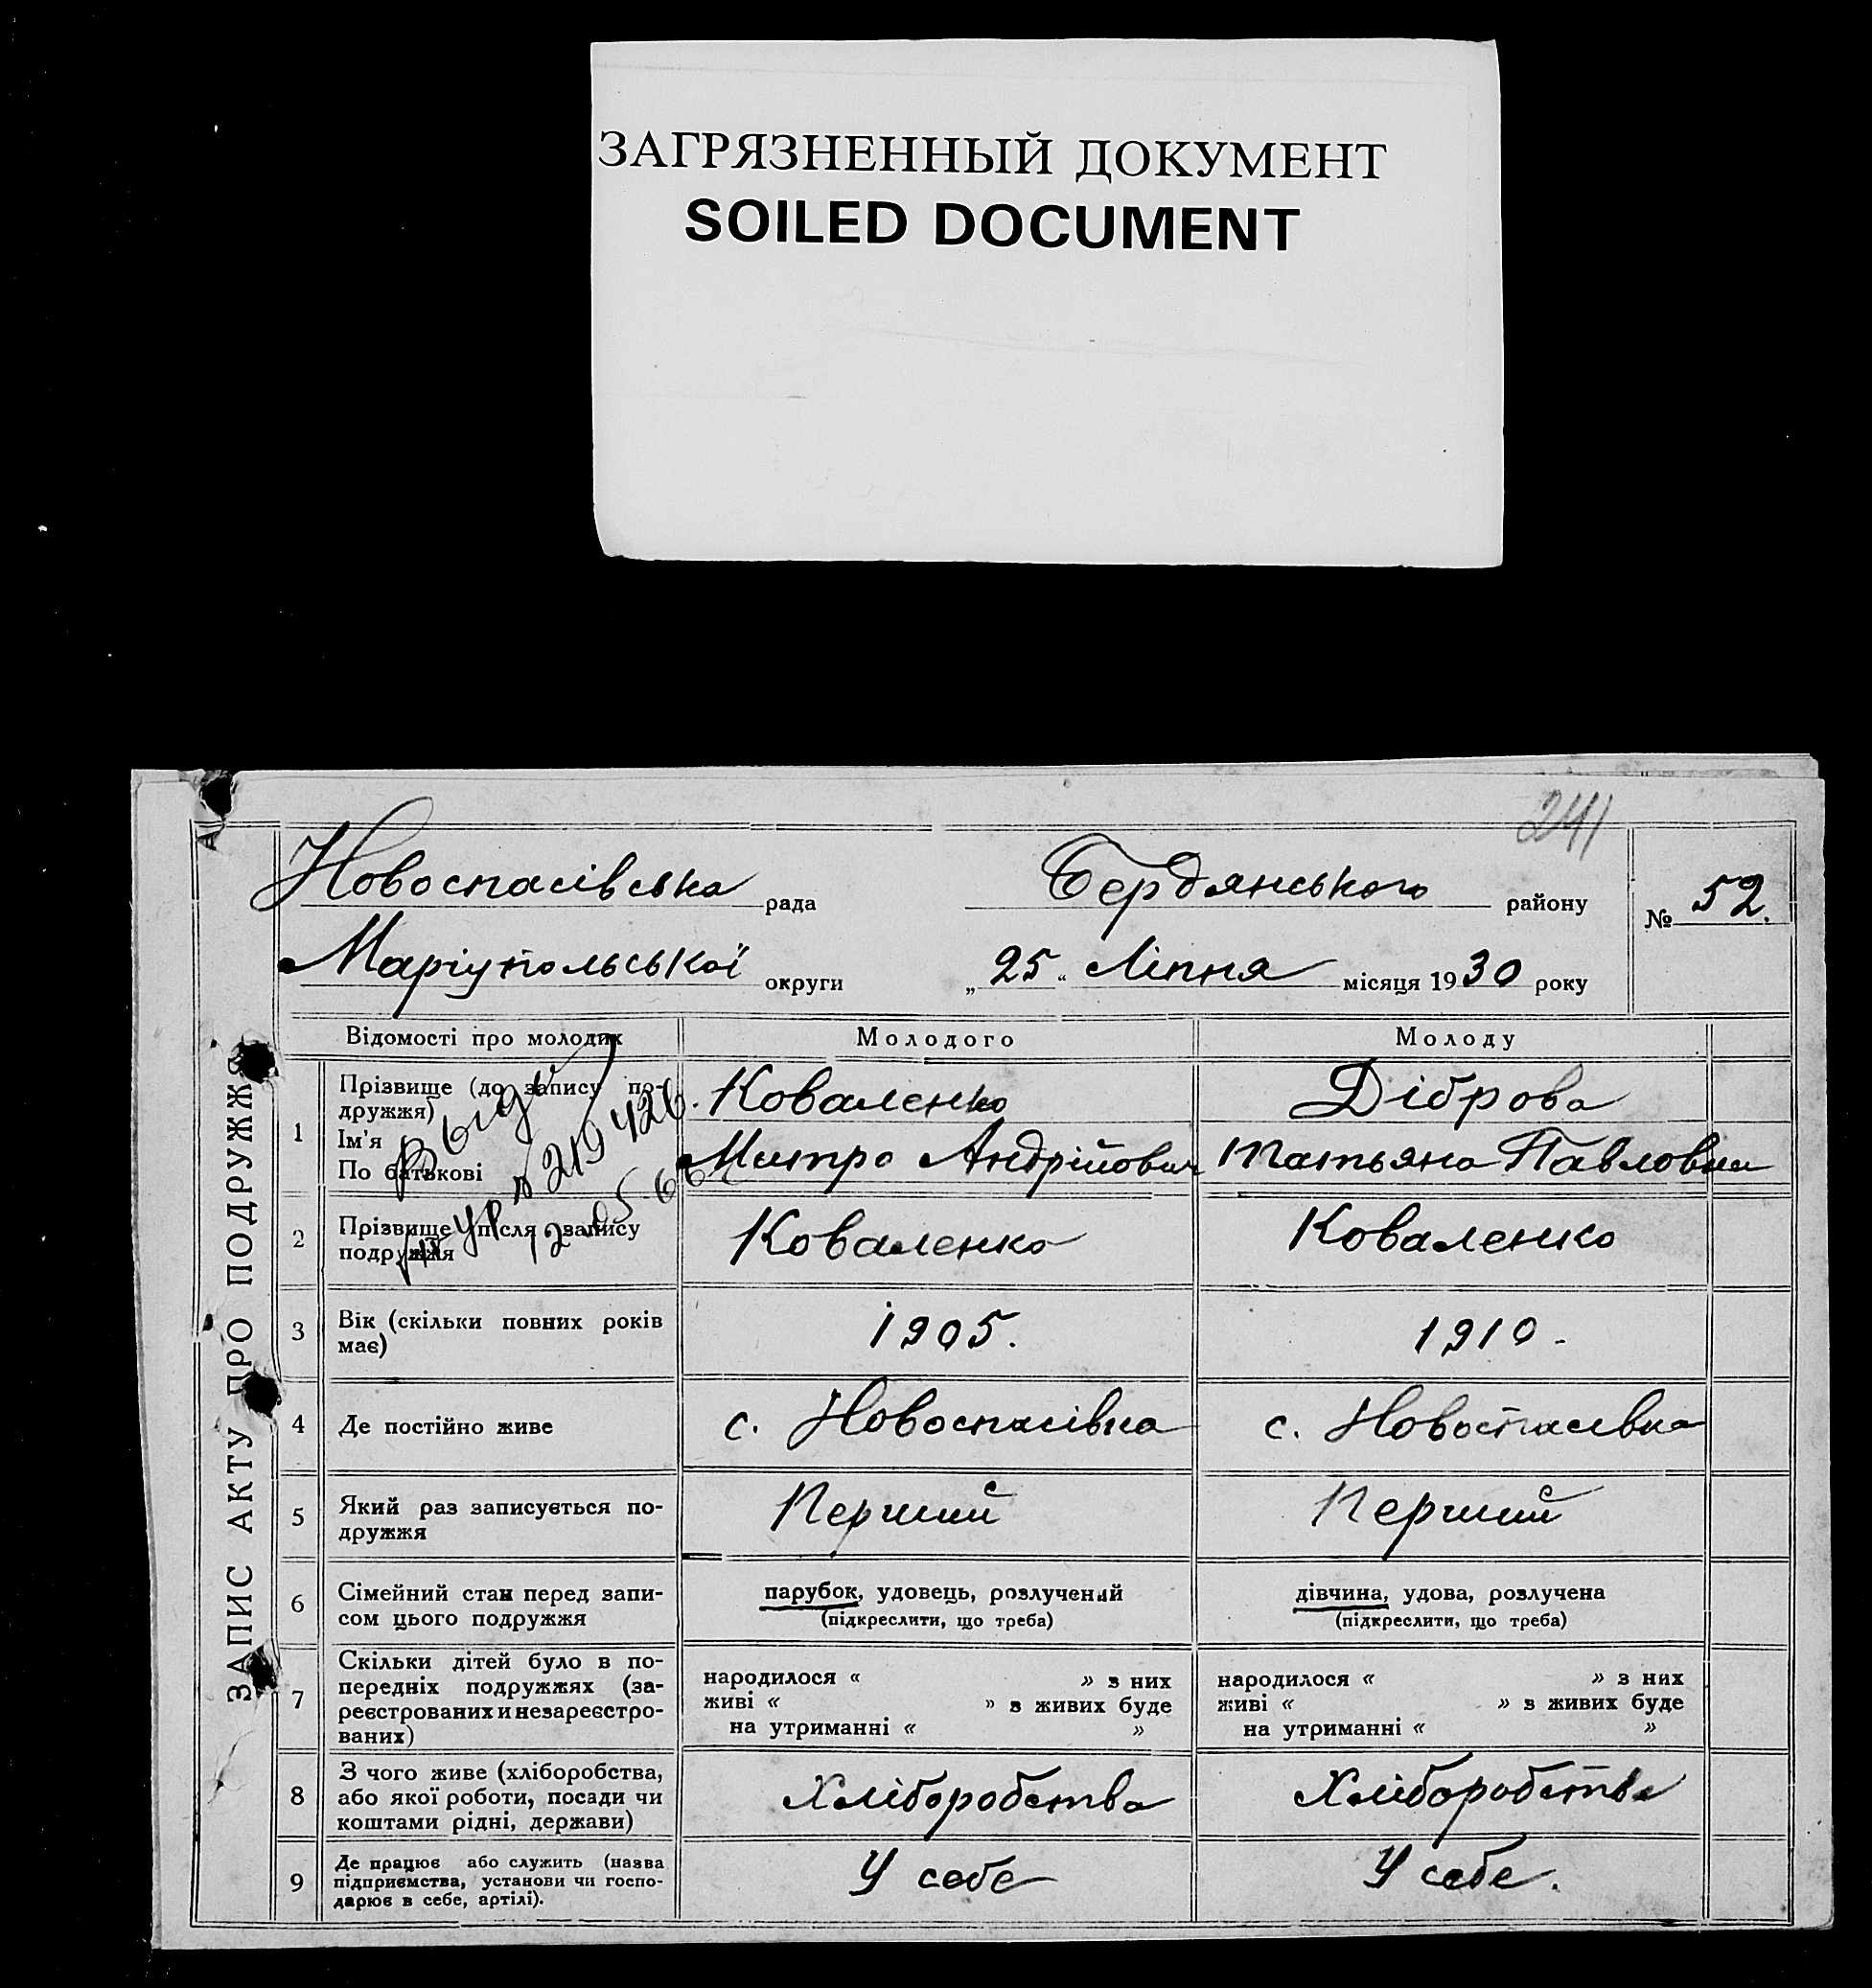 ЗАГРЯЗНЕННЫЙ ДОКУМЕНТ
SOILED DOCUMENT
241
Новоспасівська рада Бердянського району № 52.
Маріупольської округи „ 25 “ Ліпня місяця 1930 року
ЗАПИС АКТУ ПРО ПОДРУЖЖЯ
Відомості про молодих Молодого Молоду
1 Прізвище (до запису по-
дружжя)
Ім'я
По батькові
Коваленко Діброва
Митро Андрійович Татьяна Павловна
219426
2 Прізвище після запису
подружжя
Коваленко Коваленко
3 Вік (скільки повних років
має)
1905. 1910.
4 Де постійно живе с. Новоспасівка с. Новоспасівка
5 Який раз записується по-
дружжя
Перший Перший
6 Сімейний стан перед запи-
сом цього подружжя
парубок, удовець, розлучений дівчина, удова, розлучена
(підкреслити, що треба) (підкреслити, що треба)
7 Скільки дітей було в по-
передніх подружжях (за-
реєстрованих и незареєстро-
ваних)
народилося « » з них народилося « » з них
живі « » з живих буде живі « » з живих буде
на утриманні « » на утриманні « »
8 З чого живе (хліборобства,
або якої роботи, посади чи
коштами рідні, держави)
Хліборобства Хліборобства
9 Де працює або служить (назва
підприємства, установи чи госпо-
дарює в себе, артілі).
У себе У себе.